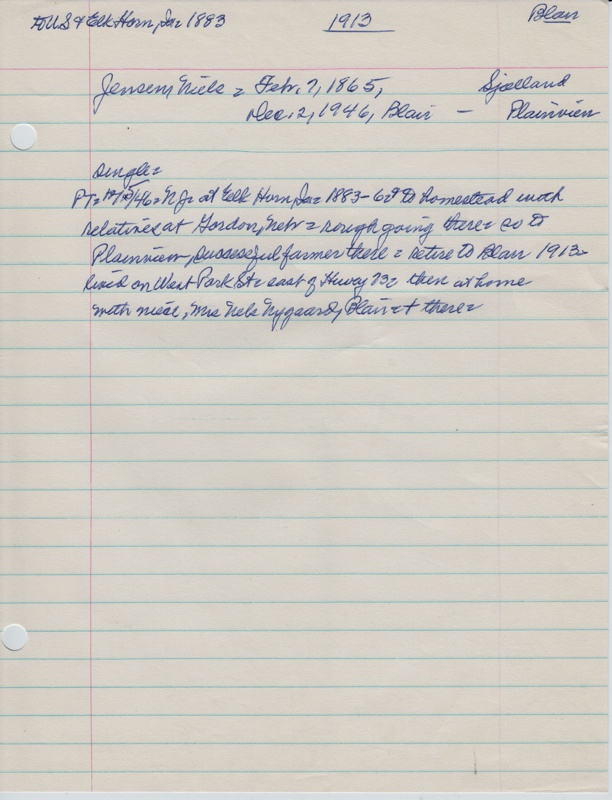 to US & Elk Horn, Ia = 1883 1913 Blair
Jensen, Niels = Feb. 7, 1865, Sjælland
Dec. 2, 1946, Blair — Plainview
Single =
PT = 12/12/46 = NJ = at Elk Horn, Ia = 1883 - to homestead with
relatives at Gordon, Nebr = rough going there = so to
Plainview, successful farmer there = retire to Blair 1913 =
lived on West Park St = east of Hwy 73 = then at home
with niese, Mrs Nels Nygaard, Blair = + there =